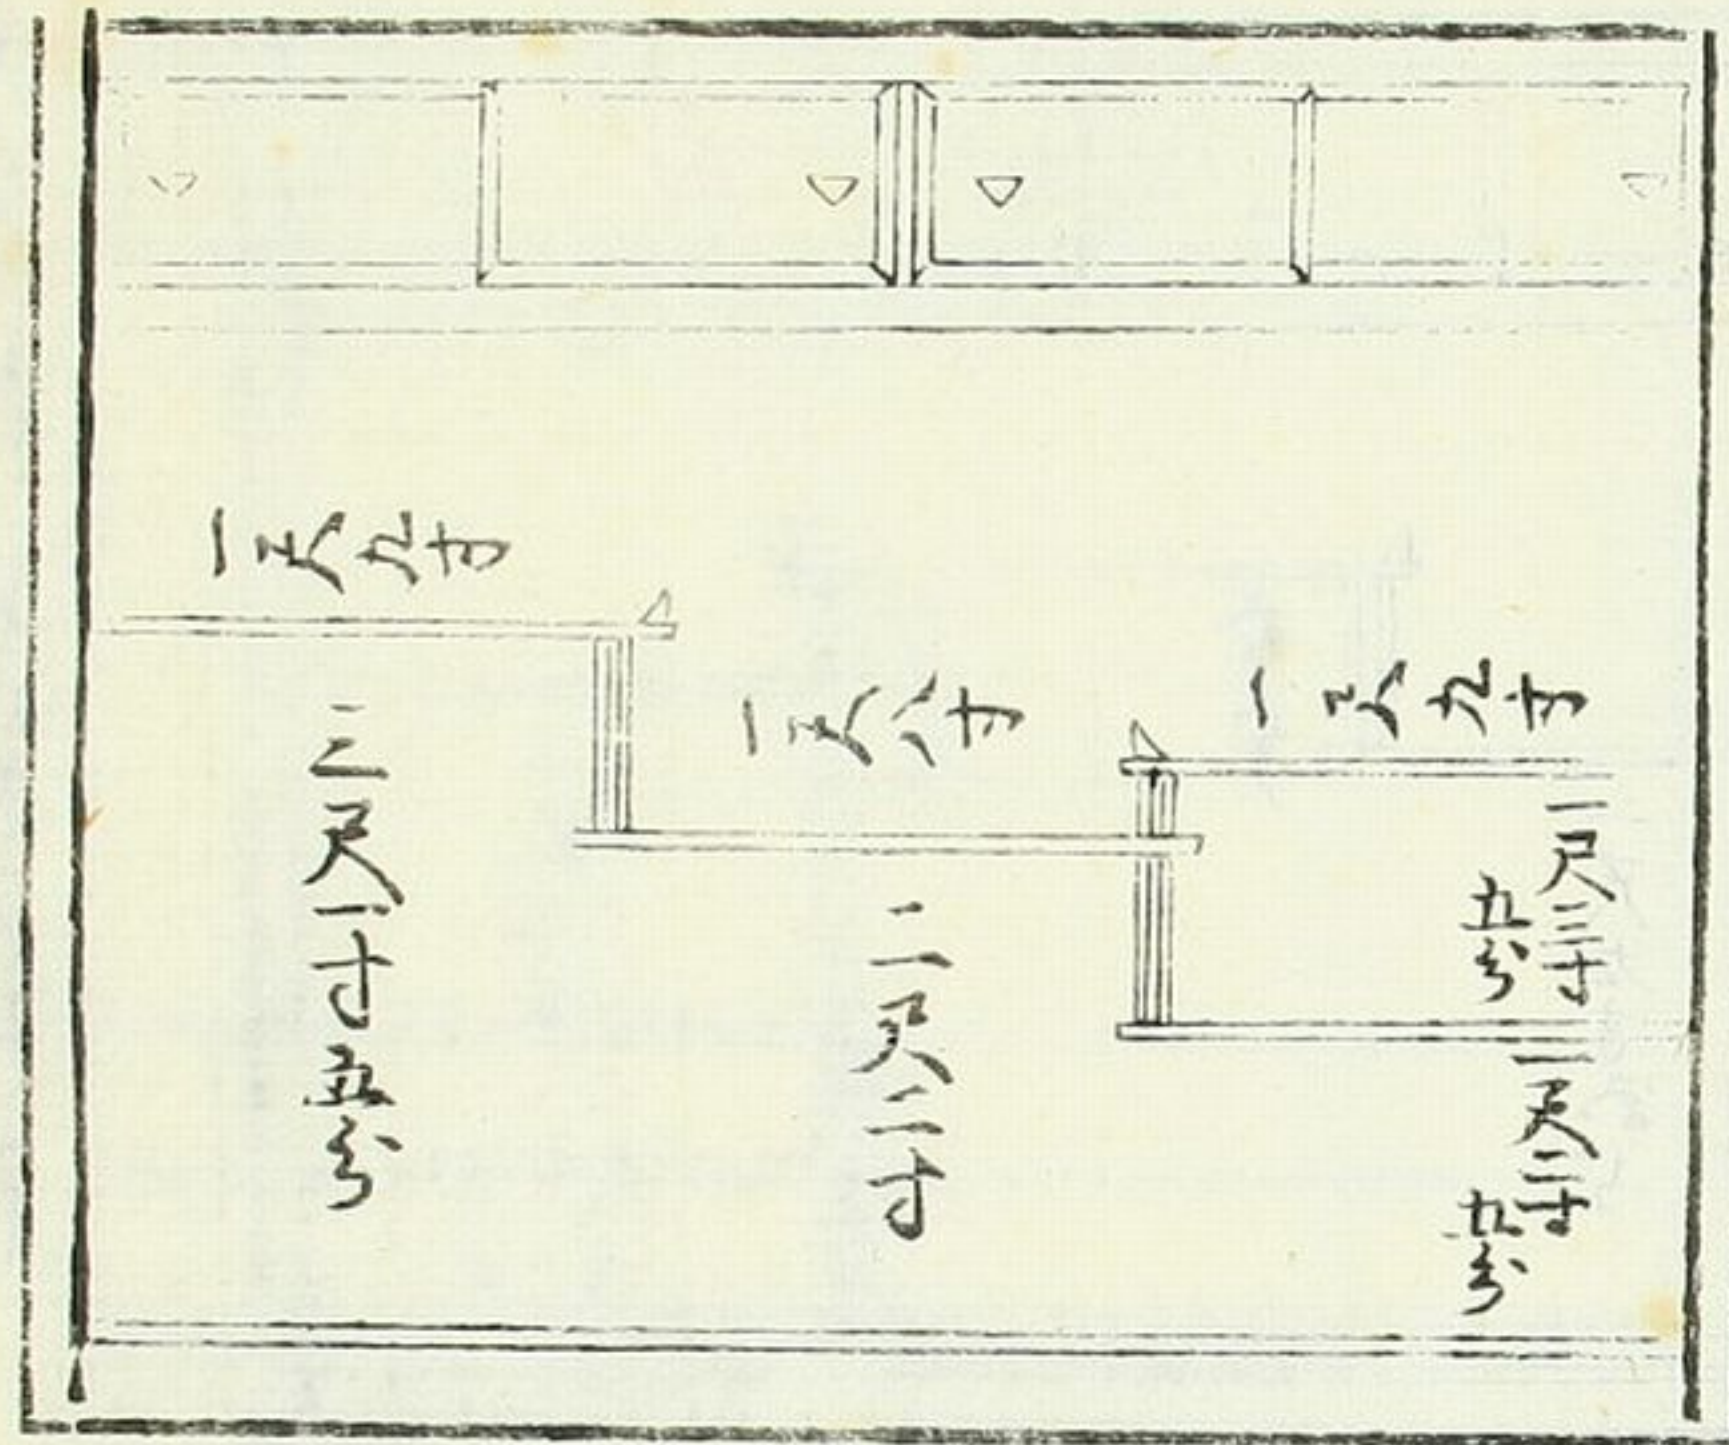 一尺九寸
一尺三寸
五分
一尺二寸
五分
一尺八寸
二尺二寸
一尺九寸
三尺一寸五分